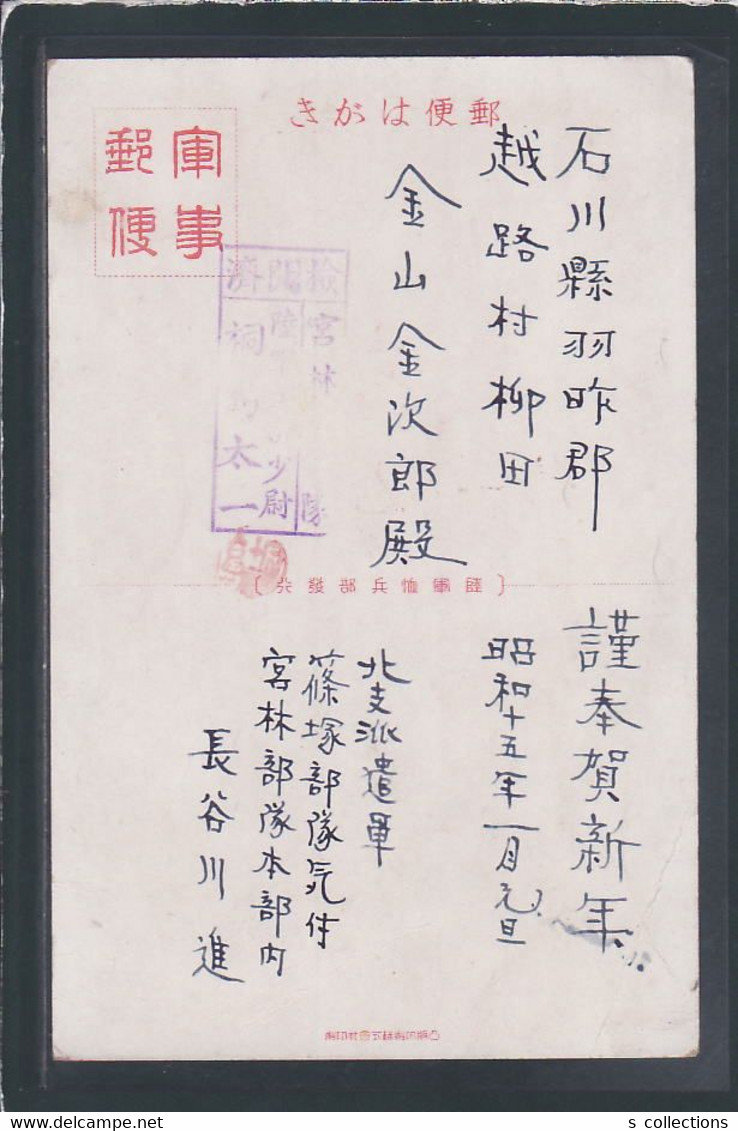 郵便はがき
軍事
郵便
石川縣羽咋郡
越路村柳田
金山金次郎殿
検閲済
宮林
隊
少尉
太一
〔陸軍恤兵部發行〕
謹奉賀新年
昭和十五年一月元旦
北支派遣軍
篠塚部隊気付
宮林部隊本部内
長谷川進
s collections